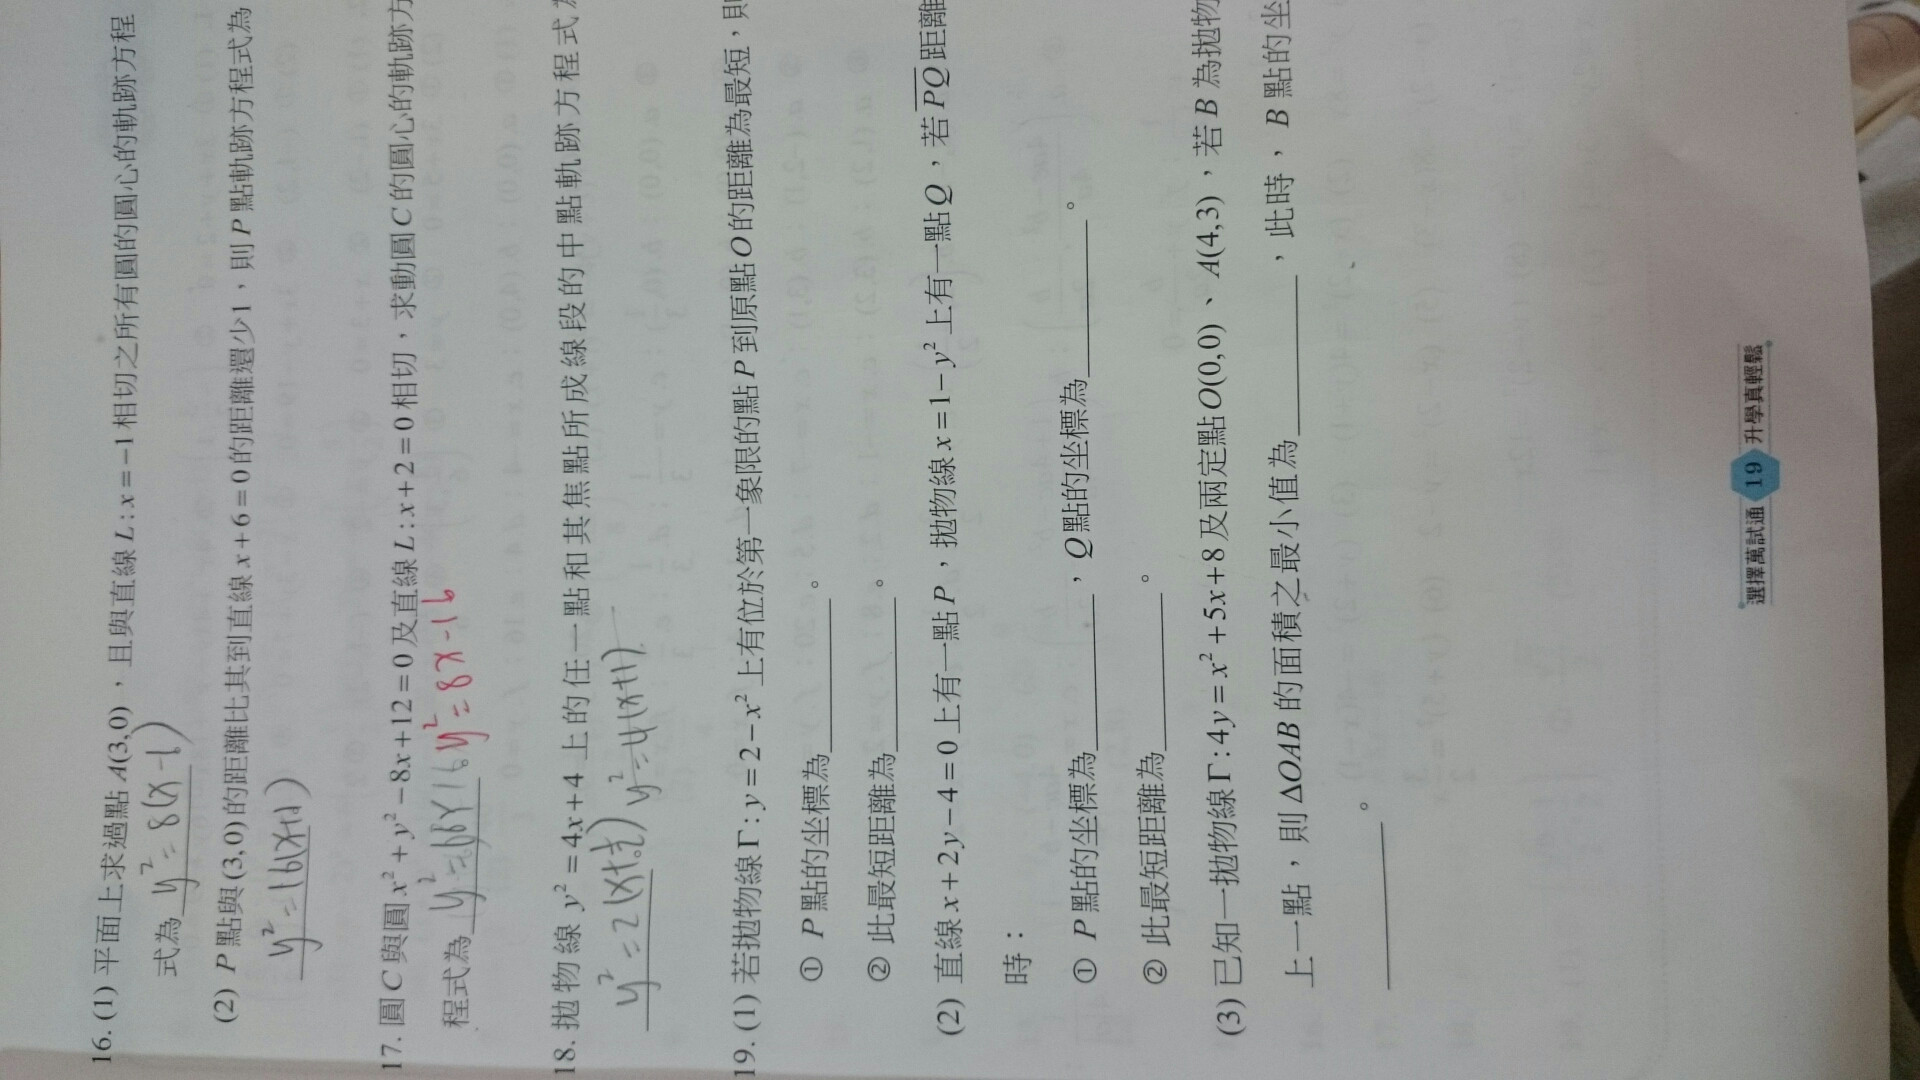 16. (1) 平面上求過點 A(3,0)，且與直線 L:x=−1 相切之所有圓的圓心的軌跡方程
式為 y²=8(x-1)
(2) P 點與(3,0)的距離比其到直線 x+6=0 的距離還少1，則 P 點軌跡方程式為
y²=16(x+1)
17. 圓 C 與圓 x²+y²−8x+12=0 及直線 L:x+2=0 相切，求動圓 C 的圓心的軌跡方
程式為 y²=8x-16
18. 拋物線 y²=4x+4 上的任一點和其焦點所成線段的中點軌跡方程式為
y²=2(x+0.5) y²=4(x+1)
19. (1) 若拋物線 Γ:y=2−x² 上有位於第一象限的點 P 到原點 O 的距離為最短，則
① P 點的坐標為 。
② 此最短距離為 。
(2) 直線 x+2y−4=0 上有一點 P，拋物線 x=1−y² 上有一點 Q，若 PQ 距離
時：
① P 點的坐標為 ，Q 點的坐標為 。
② 此最短距離為 。
(3) 已知一拋物線 Γ:4y=x²+5x+8 及兩定點 O(0,0)、A(4,3)，若 B 為拋物
上一點，則 ΔOAB 的面積之最小值為 ，此時，B 點的坐
。
選擇萬試通 19 升學真輕鬆